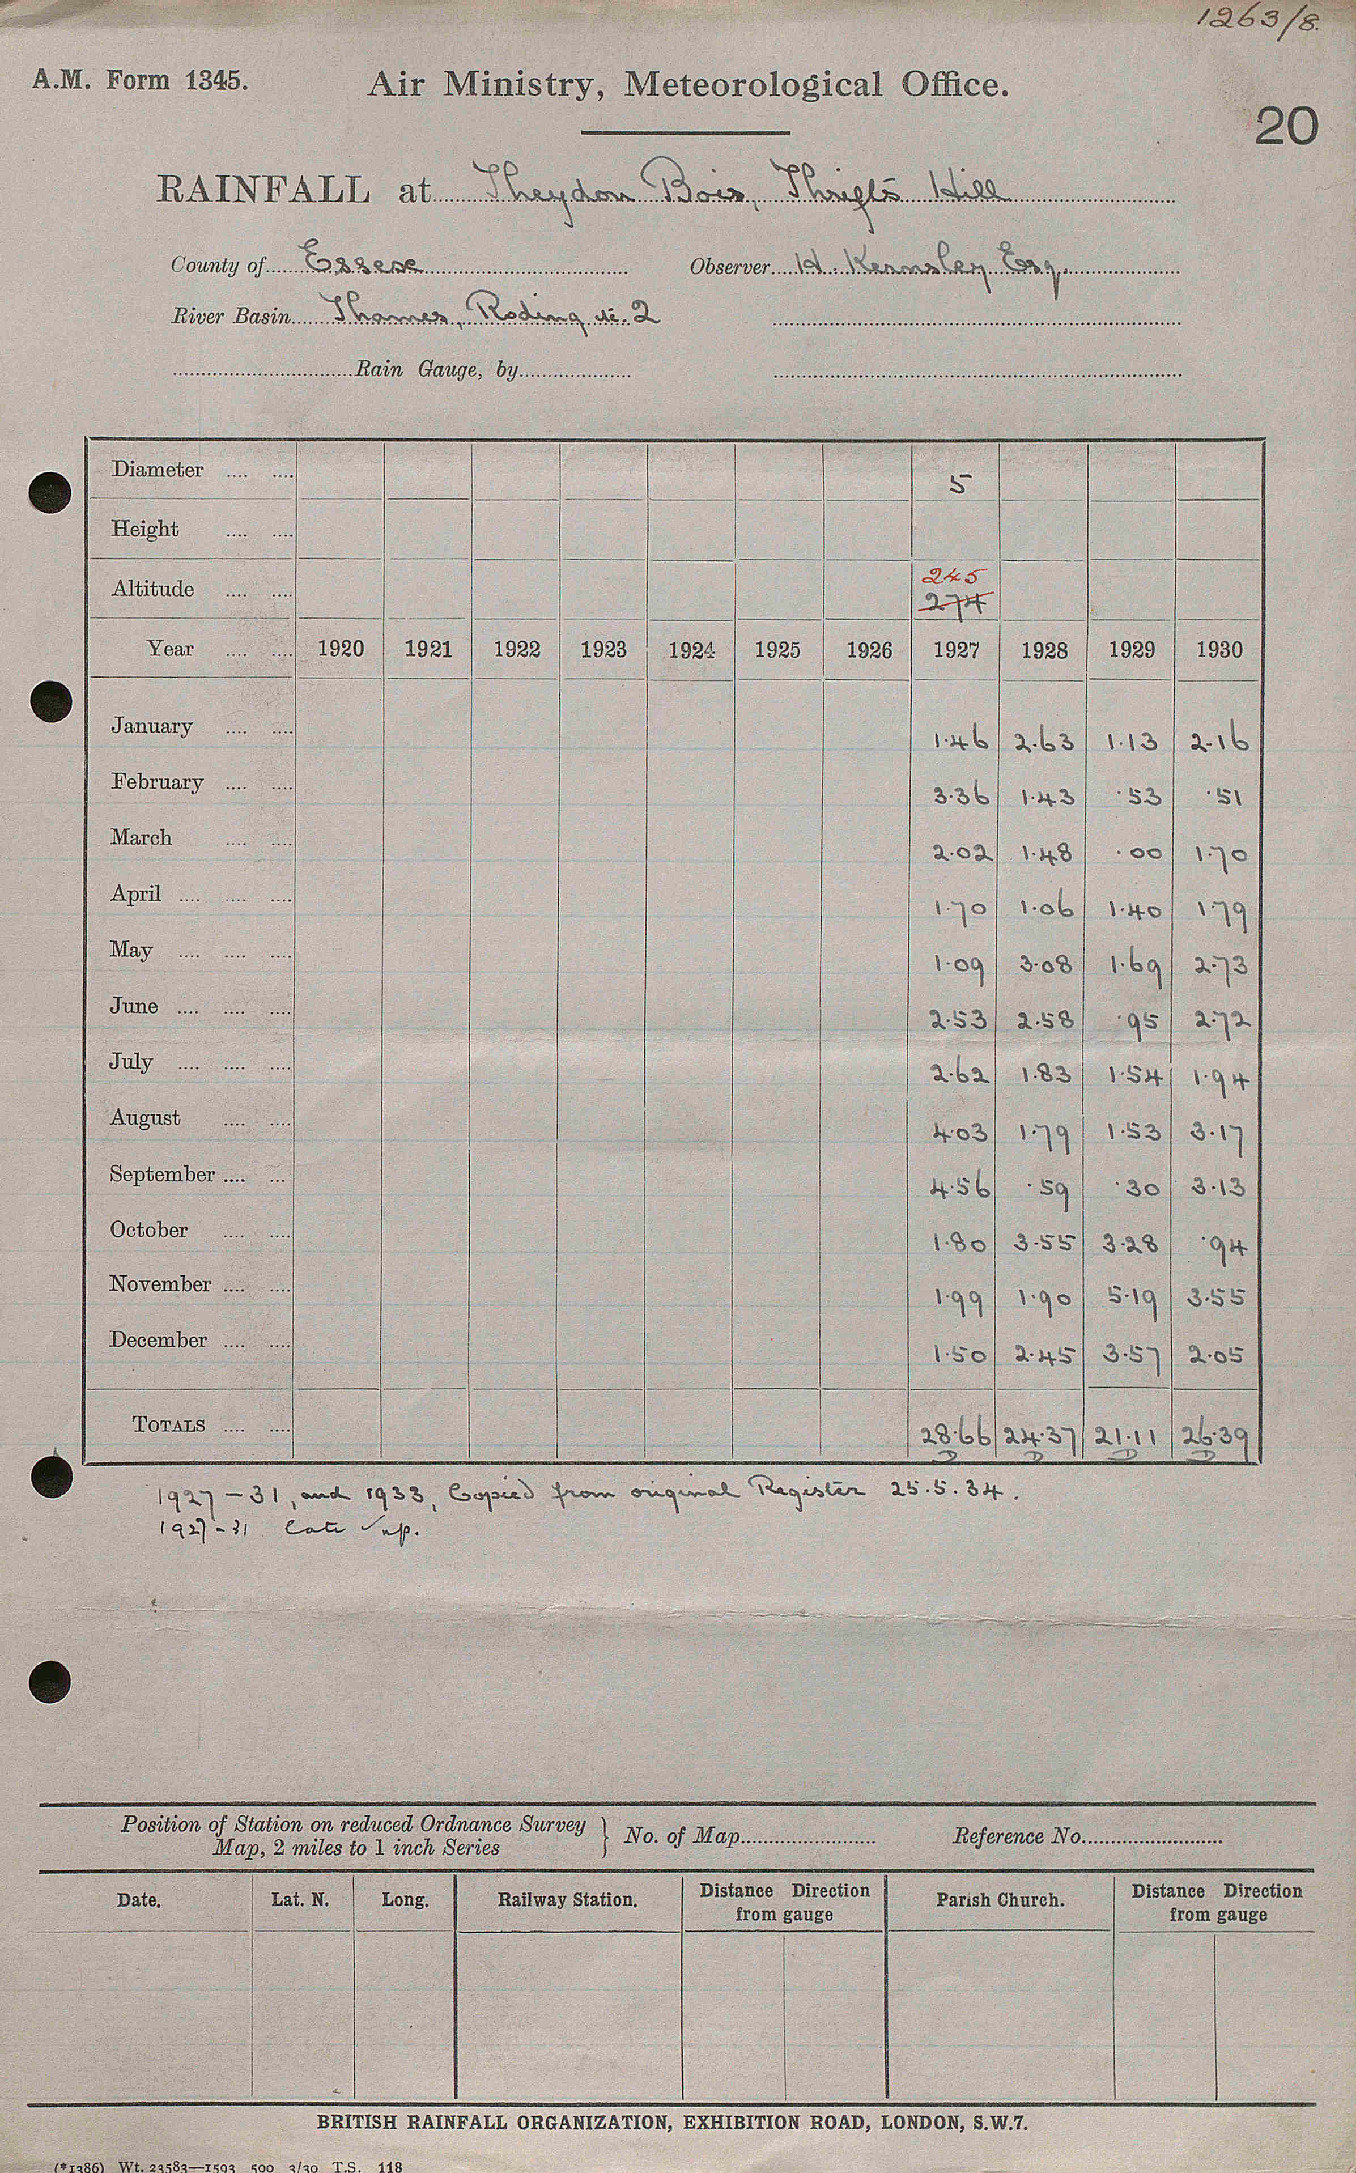 1263/8.
A.M. Form 1345. Air Ministry, Meteorological Office.
20
RAINFALL at Theydon Bois, Thrifts Hill
County of Essex Observer H. Kemsley Esq.
River Basin Thames, Roding iii. 2
Rain Gauge, by
Diameter 5
Height
Altitude 245
274
Year 1920 1921 1922 1923 1924 1925 1926 1927 1928 1929 1930
January 1.46 2.63 1.13 2.16
February 3.36 1.43 .53 .51
March 2.02 1.48 .00 1.70
April 1.70 1.06 1.40 1.79
May 1.09 3.08 1.69 2.73
June 2.53 2.58 .95 2.72
July 2.62 1.83 1.54 1.94
August 4.03 1.79 1.53 3.17
September 4.56 .59 .30 3.13
October 1.80 3.55 3.28 .94
November 1.99 1.90 5.19 3.55
December 1.50 2.45 3.57 2.05
TOTALS 28.66 24.37 21.11 26.39
D D D D
1927-31, and 1933, Copied from original Register 25.5.34.
1927-31 Late
Position of Station on reduced Ordnance Survey
Map, 2 miles to 1 inch Series } No. of Map Reference No.
Date. Lat. N. Long. Railway Station. Distance Direction from gauge Parish Church. Distance Direction from gauge
BRITISH RAINFALL ORGANIZATION, EXHIBITION ROAD, LONDON, S.W.7.
(*1386) Wt. 23583—1593 500 3/30 T.S. 118